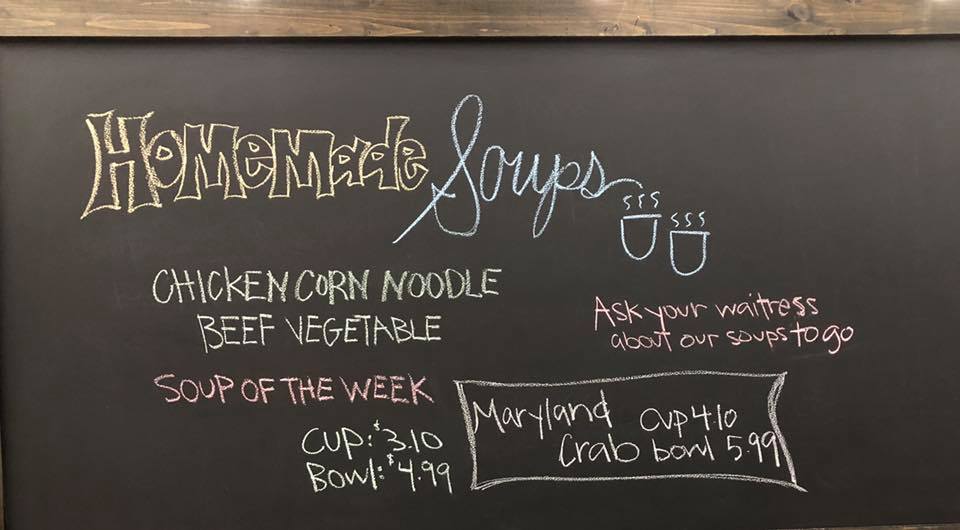 HOMEMADE Soups
CHICKEN CORN NOODLE
BEEF VEGETABLE
Ask your waitress
about our soups to go
SOUP OF THE WEEK
CUP: $3.10
BOWL: $4.99
Maryland CUP 410
Crab bowl 5.99